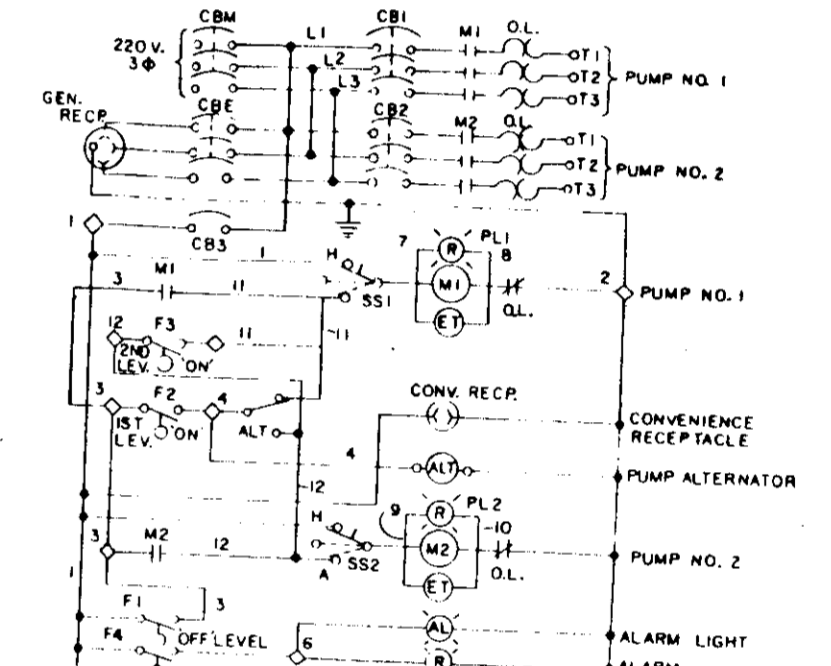 CBM
CB1
220 V.
3 Φ
L1
L2
L3
M1
O.L.
T1
T2
T3
PUMP NO. 1
GEN.
RECP.
CBE
CB2
M2
O.L.
T1
T2
T3
PUMP NO. 2
1
CB3
1
H
SS1
7
R
PL1
8
M1
ET
O.L.
2
PUMP NO. 1
3
M1
11
12
F3
2ND
LEV.
ON
11
11
3
F2
4
1ST
LEV.
ON
ALT
CONV. RECP.
CONVENIENCE
RECEPTACLE
4
ALT
PUMP ALTERNATOR
12
9
R
PL2
10
H
3
M2
12
A
SS2
M2
ET
O.L.
PUMP NO. 2
1
F1
3
OFF LEVEL
F4
6
AL
ALARM LIGHT
R
ALARM